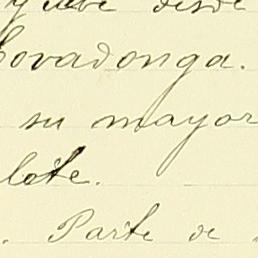 y sube desde
Covadonga.
su mayor
lote.
. Parte de